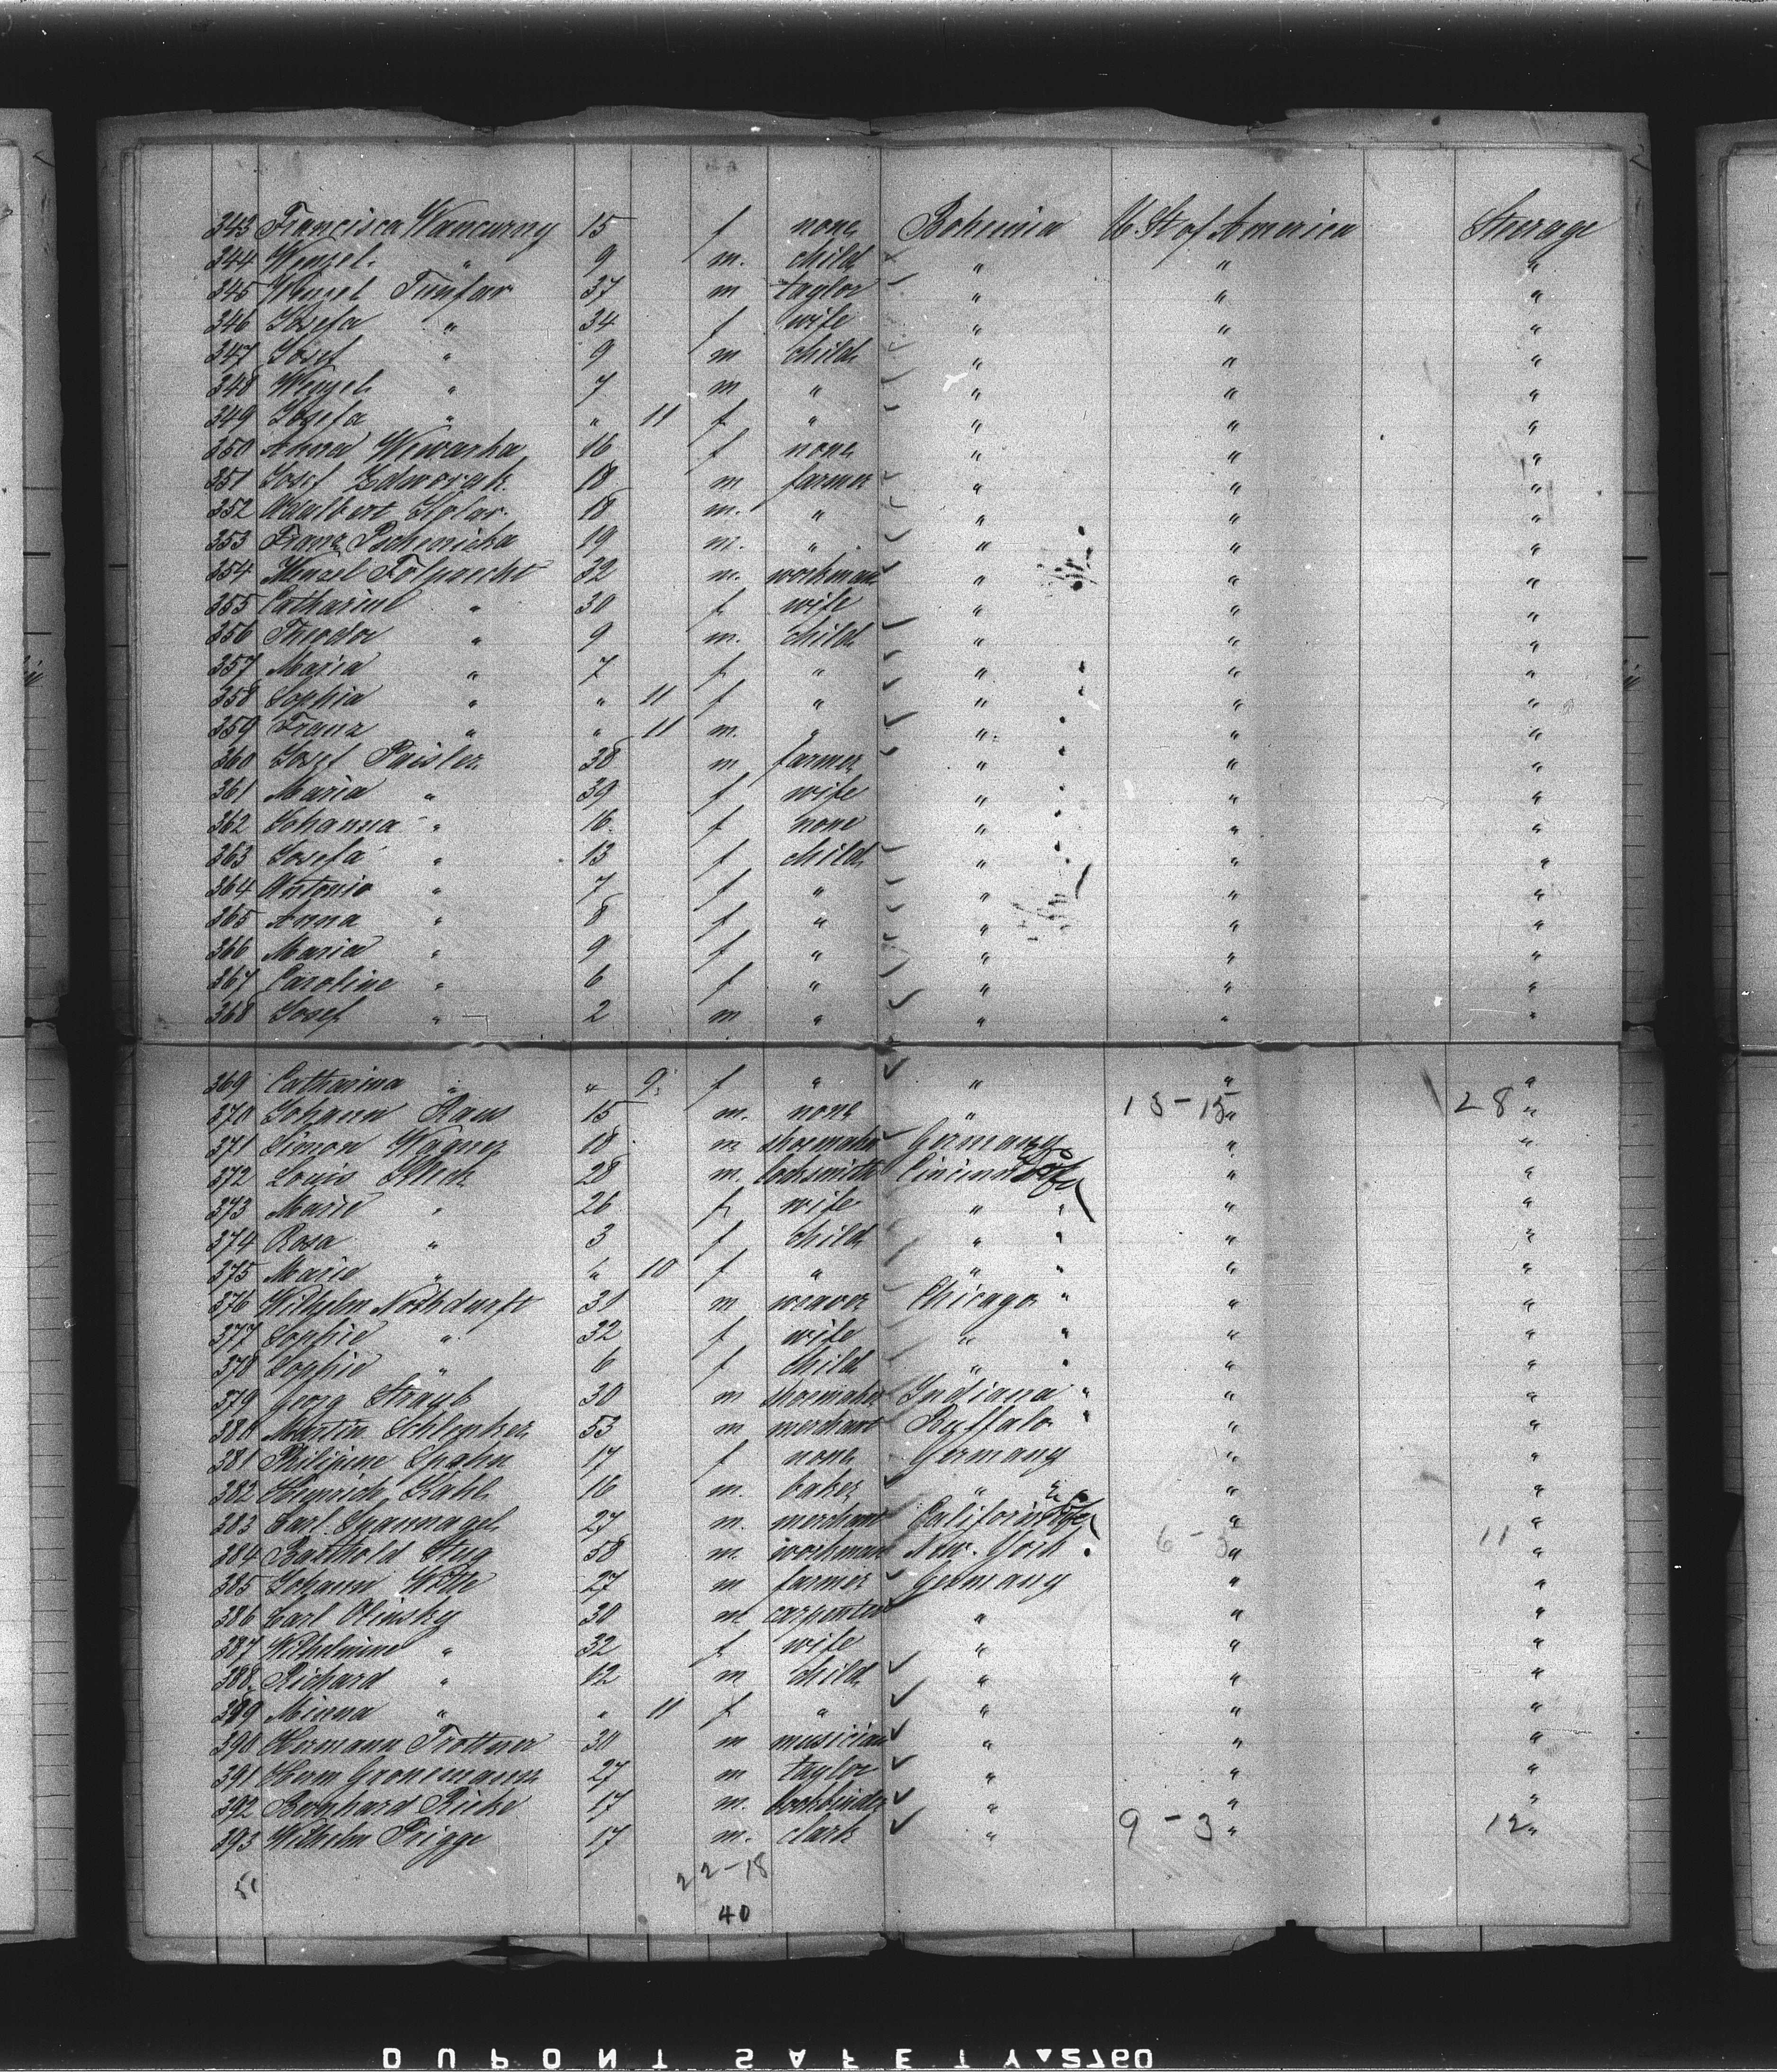 343 Francisca Wancurny 15 f none Bohemia U St of America Steerage
344 Wenzel " 9 m. child " " "
345 Wenzel Tunfar 37 m taylor " " "
346 Josefa " 34 f wife " " "
347 Josef " 9 m child " " "
348 Wenzel " 7 m " " " "
349 Josefa " " 11 f " " " "
350 Anna Wewarka 16 f none " " "
351 Josef Zdworak 18 m farmer " " "
352 Adalbert Kolar 18 m. " " " "
353 Franz 19 m. " " " "
354 Wenzel 32 m. workman " " "
355 Catharine " 30 f wife " " "
356 Theodor " 9 m. child " " "
357 Maria " 7 f " " " "
358 Sophia " " 11 f " " " "
359 Franz " " 11 m. " " " "
360 Josef Paisler 38 m farmer " " "
361 Maria " 39 f wife " " "
362 Johanna " 16 f none " " "
363 Josefa " 13 f child " " "
364 Antonia " 7 f " " " "
365 Anna " 8 f " " " "
366 Maria " 9 f " " " "
367 Caroline " 6 f " " " "
368 Josef " 2 m " " " "
369 Catharina " " 9 f " " " "
370 Johann 15 m. none " 13-15 " 28 "
371 Simon Wagner 18 m shoemaker Germany " "
372 Louis 28 m. locksmith " "
373 Marie " 26 f wife " " "
374 Rosa " 3 f child " " "
375 Marie " " 10 f " " " "
376 Wilhelm Nothdurft 31 m weaver Chicago " " "
377 Sophie " 32 f wife " " "
378 Sophie " 6 f child " " "
379 Georg Straub 30 m shoemaker Indiana " " "
380 Martin Schlenker 53 m merchant Buffalo " " "
381 Philipine Spahn 17 f none Germany " "
382 Heinrich Kahl 16 m. baker " " "
383 Carl Spannagel 27 m. merchant " "
384 Barthold 58 m. workman New York 6-5 " 11 "
385 Johann Witte 27 m farmer Germany " "
386 Carl Olinsky 30 m carpenter " " "
387 Wilhelmine " 32 f wife " " "
388. Richard " 12 m child " " "
389 Minna " " 11 f " " " "
390 Hermann Trottner 30 m musician " " "
391 Herm Gronemann 27 m taylor " " "
392 Bernhard Ricke 17 m. bookbinder " " "
393 Wilhelm Prigge 17 m. clark " 9-3 " 12 "
51 22-18
40
DUPONT SAFETY 2760